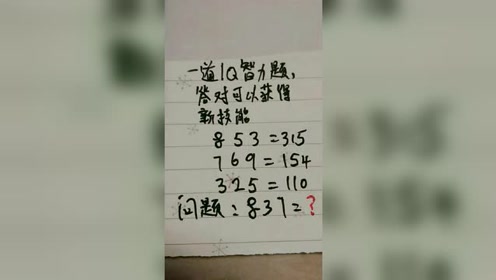 一道IQ智力题,
答对可以获得
新技能
853=315
769=154
325=110
问题:837=?